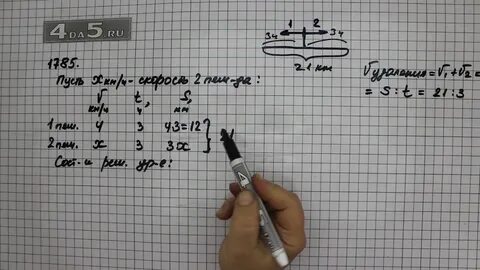 4DA5.RU
1 2
3ч 3ч
21 км
1785.
Пусть x км/ч - скорость 2 пеш-да:
V, км/ч t, ч S, км
1 пеш. 4 3 4·3=12
2 пеш. x 3 3x
21
Сост. и реш. ур-е:
Vудаления = V₁ + V₂ =
= S : t = 21 : 3